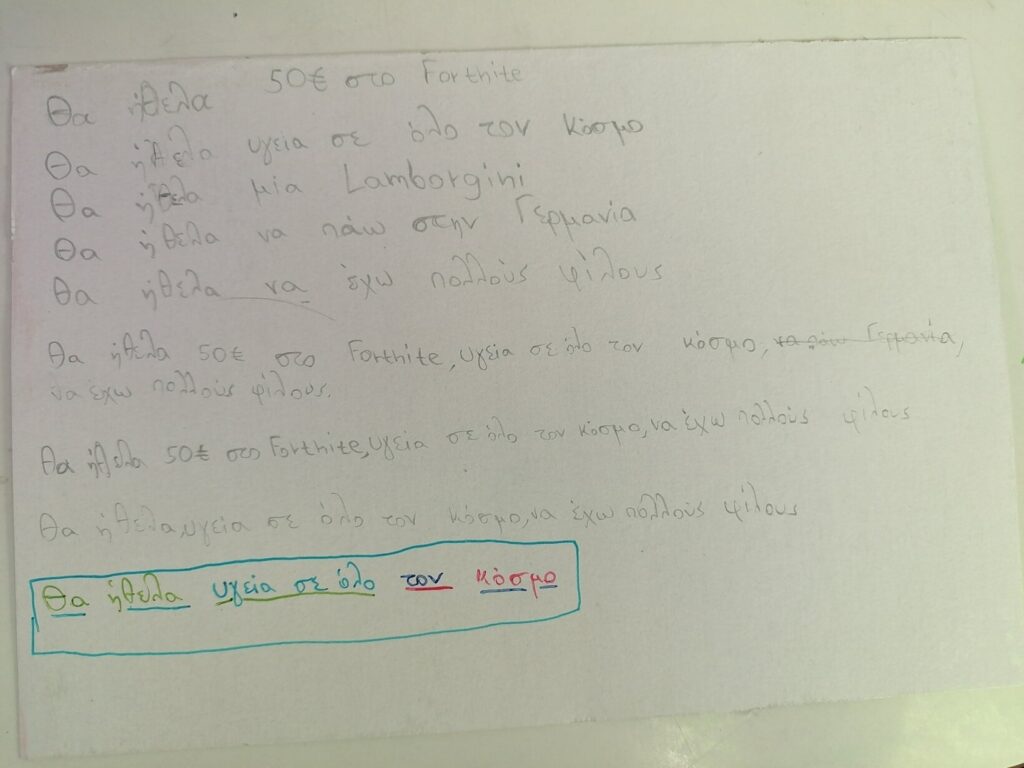 Θα ήθελα 50€ στο Forthite
Θα ήθελα υγεία σε όλο τον κόσμο
Θα ήθελα μία Lamborgini
Θα ήθελα να πάω στην Γερμανία
Θα ήθελα να έχω πολλούς φίλους
Θα ήθελα 50€ στο Forthite, υγεία σε όλο τον κόσμο, να πάω Γερμανία,
να έχω πολλούς φίλους.
Θα ήθελα 50€ στο Forthite, υγεία σε όλο τον κόσμο, να έχω πολλούς φίλους
Θα ήθελα, υγεία σε όλο τον κόσμο, να έχω πολλούς φίλους
Θα ήθελα υγεία σε όλο τον κόσμο